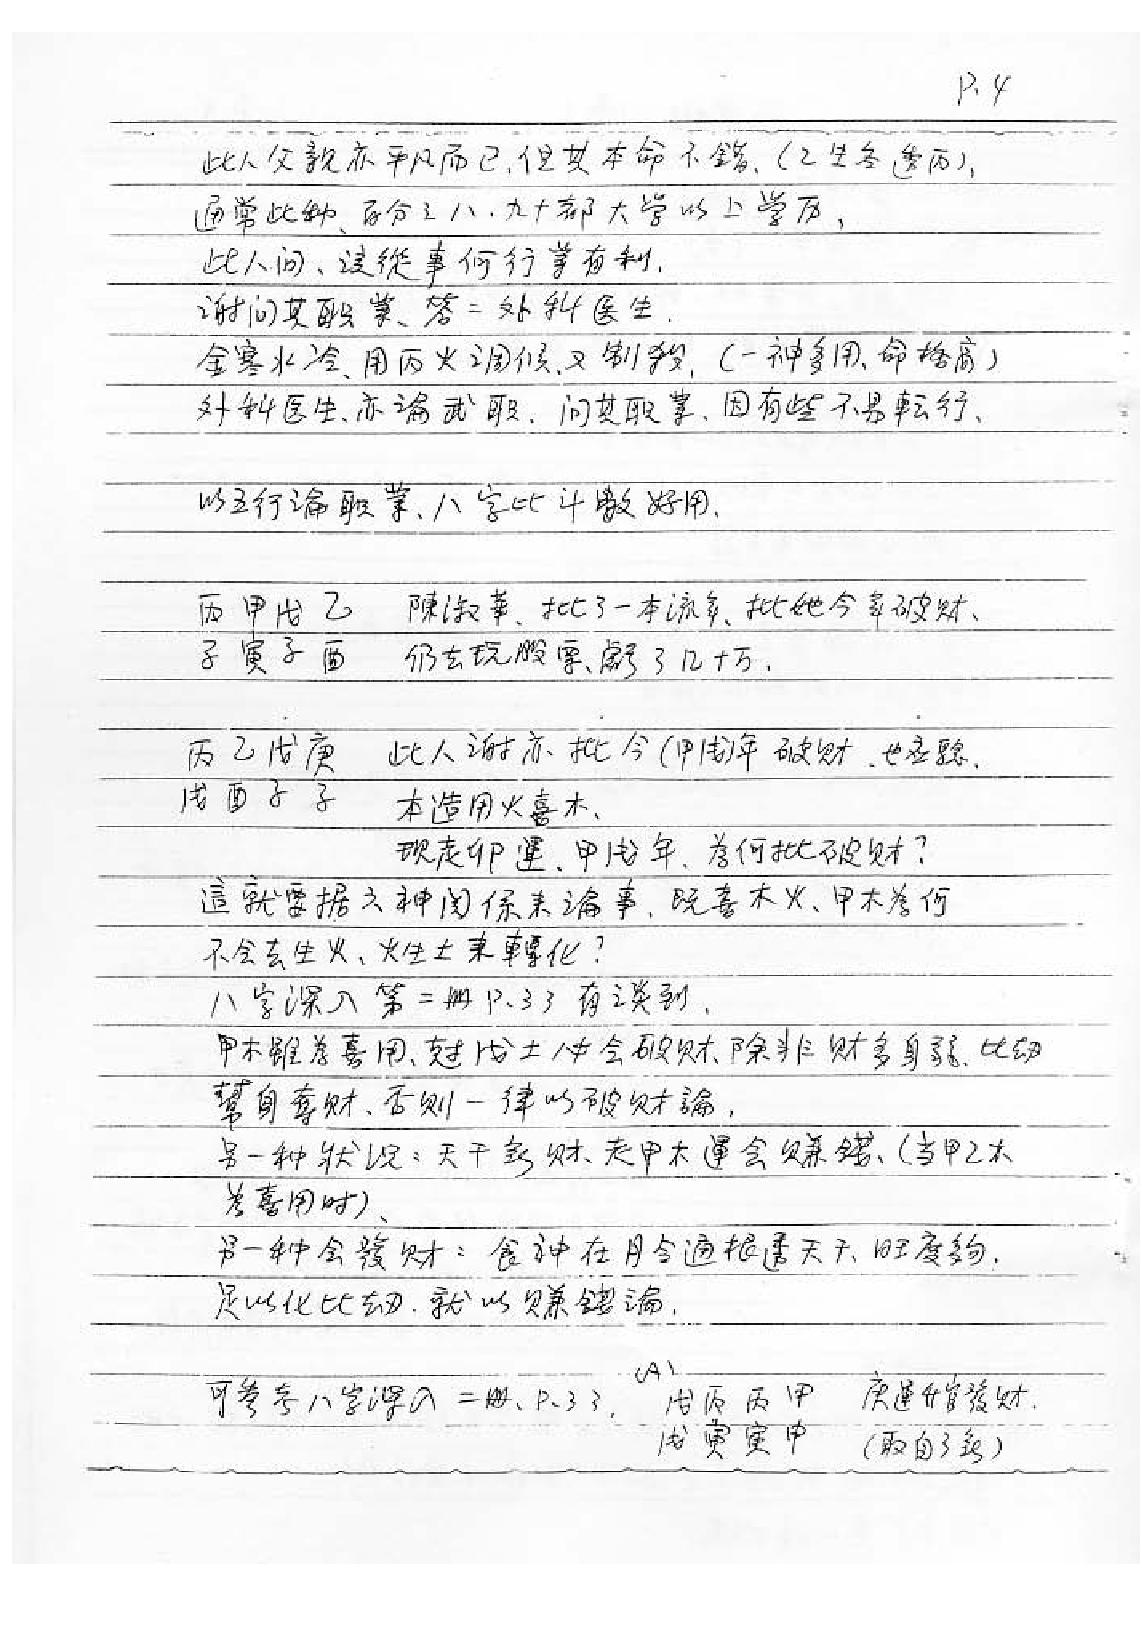 P.4
此人父親亦平凡而已,但其本命不錯、(乙生冬透丙),
通常此種、百分之八、九十都大学以上学历,
此人问、該從事何行業有利.
謝问其职業、答=外科医生.
金寒水冷、用丙火调候、又制殺, (一神多用、命格高)
外科医生、亦論武职. 问其职業、因有些不易転行、
以五行論职業、八字比斗数好用.
丙甲戊乙 陳淑華、批了一本流年、批她今年破财、
子寅子酉 仍去玩股票、虧了几十万.
丙乙戊庚 此人謝亦批今(甲戌)年破财、也应驗.
戌酉子子 本造用火喜木、
現走卯運、甲戌年、為何批破财?
這就要据六神関係来論事、既喜木火、甲木為何
不会去生火、火生土来轉化?
八字深入第二冊P.33有談到.
甲木雖為喜用、尅戊土必会破财、除非财多身弱、比劫
幫身奪财、否則一律以破财論.
另一种狀況:天干無财、走甲木運会赚錢、(当甲乙木
為喜用时)、
另一种会發财:食神在月令通根透天干、旺度夠.
足以化比劫.就以赚錢論.
可參考八字深入二冊、P.33. (A) 戊丙丙甲 庚運升官發财.
戌寅寅申 (取自了無)